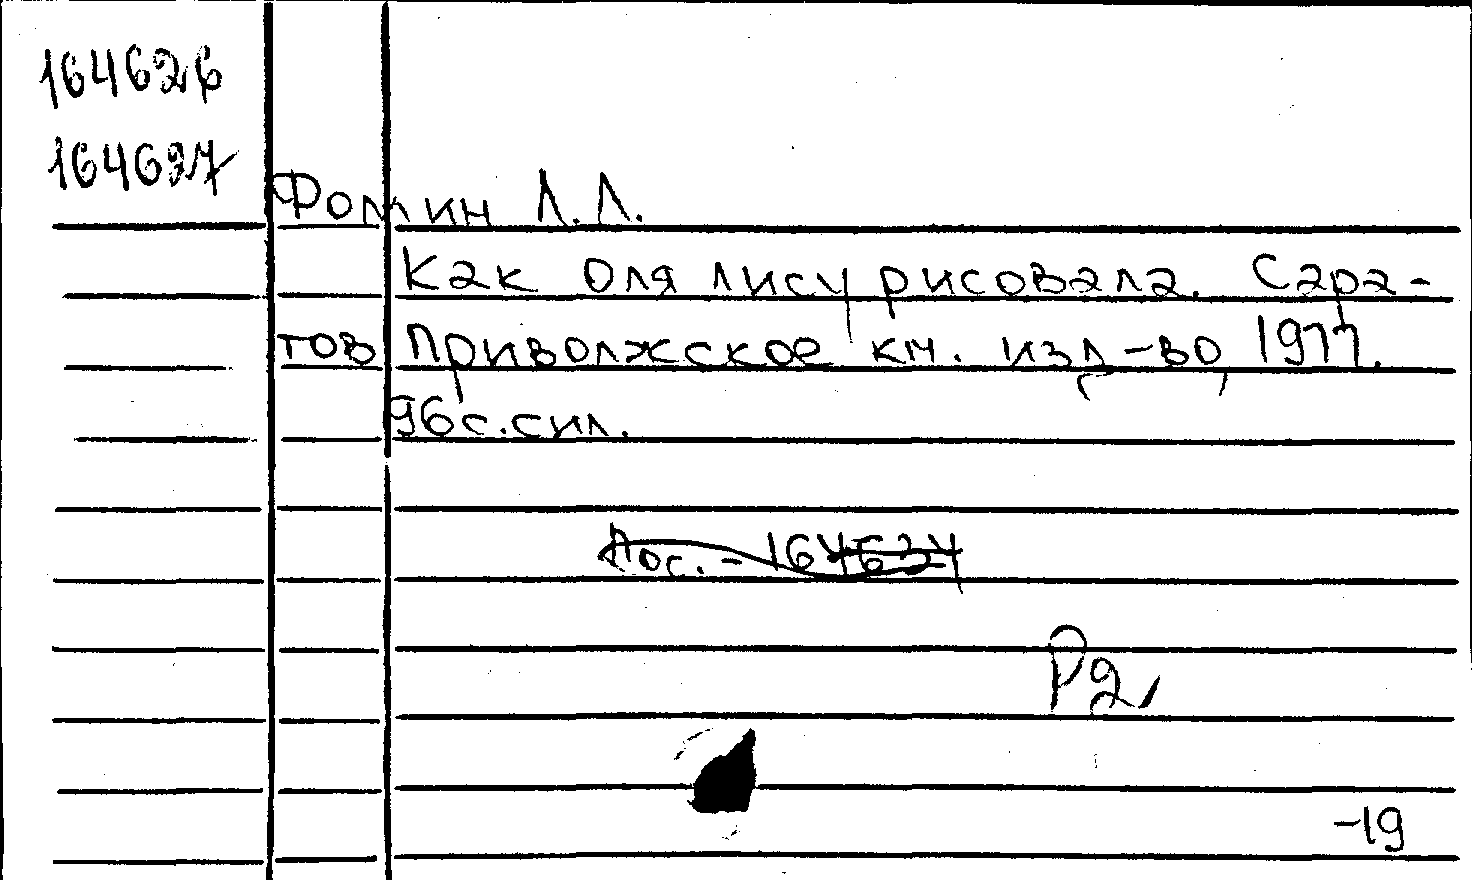 164626
164627
Фомин Л.Л.
Как Оля лису рисовала. Сара-
тов Приволжское кн. изд-во, 1977.
96с.сил.
Пос. - 164634
Р2
-19